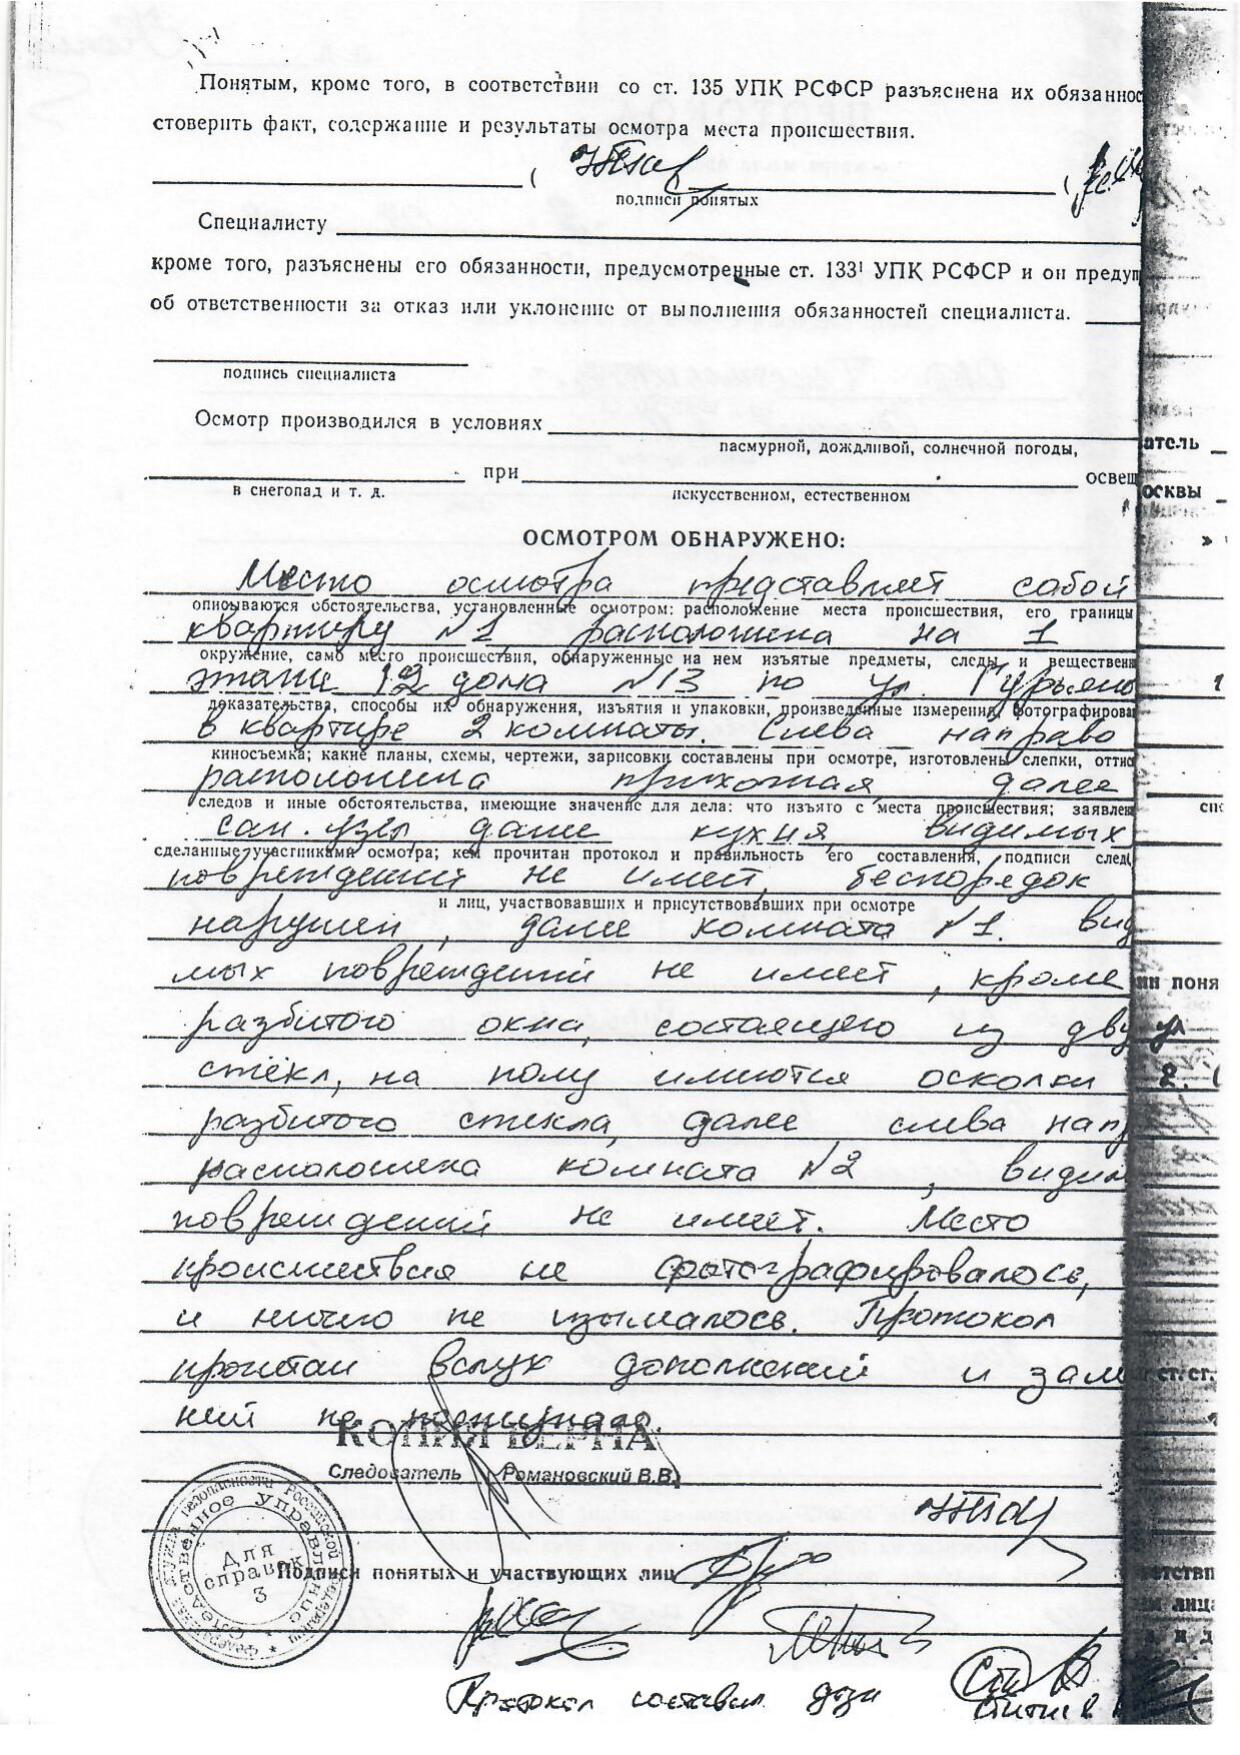 Понятым, кроме того, в соответствии со ст. 135 УПК РСФСР разъяснена их обязаннос
стоверить факт, содержание и результаты осмотра места происшествия.
подписи понятых
Специалисту
кроме того, разъяснены его обязанности, предусмотренные ст. 133¹ УПК РСФСР и он предуп
об ответственности за отказ или уклонение от выполнения обязанностей специалиста.
подпись специалиста
Осмотр производился в условиях
пасмурной, дождливой, солнечной погоды,
атель
при освещ
в снегопад и т. д. искусственном, естественном
осквы
ОСМОТРОМ ОБНАРУЖЕНО:
Место осмотра представляет собой
описываются обстоятельства, установленные осмотром: расположение места происшествия, его границы
квартиру №1, расположена на 1
окружение, само место происшествия, обнаруженные на нем изъятые предметы, следы и веществени
этаже 12 дома №13 по ул. Гурьяно
доказательства, способы их обнаружения, изъятия и упаковки, произведенные измерения, фотографирован
в квартире 2 комнаты. Слева направо
киносъемка; какие планы, схемы, чертежи, зарисовки составлены при осмотре, изготовлены слепки, оттис
расположена прихожая далее
следов и иные обстоятельства, имеющие значение для дела: что изъято с места происшествия; заявлен
сан. узел далее кухня, видимых
сделанные участниками осмотра; кем прочитан протокол и правильность его составления, подписи след
повреждений не имеет, беспорядок
и лиц, участвовавших и присутствовавших при осмотре
нарушен, далее комната №1. вид
мых повреждений не имеет, кроме
ин поня
разбитого окна, состаящего из дву
стёкл, на полу имиются осколки
разбитого стекла, далее слева нап
расположена комната №2, видим
повреждений не имеет. Место
происшествия не фотографировалось,
и ничего не изымалось. Протокол
прочитан вслух дополнений и зам
ст. ст.
ний не поступало.
КОПИЯ ВЕРНА
Следователь Романовский В.В.
Федеральная служба безопасности Российской Федерации
Следственное Управление
Для справок
3
Подписи понятых и участвующих лиц
Протокол составил